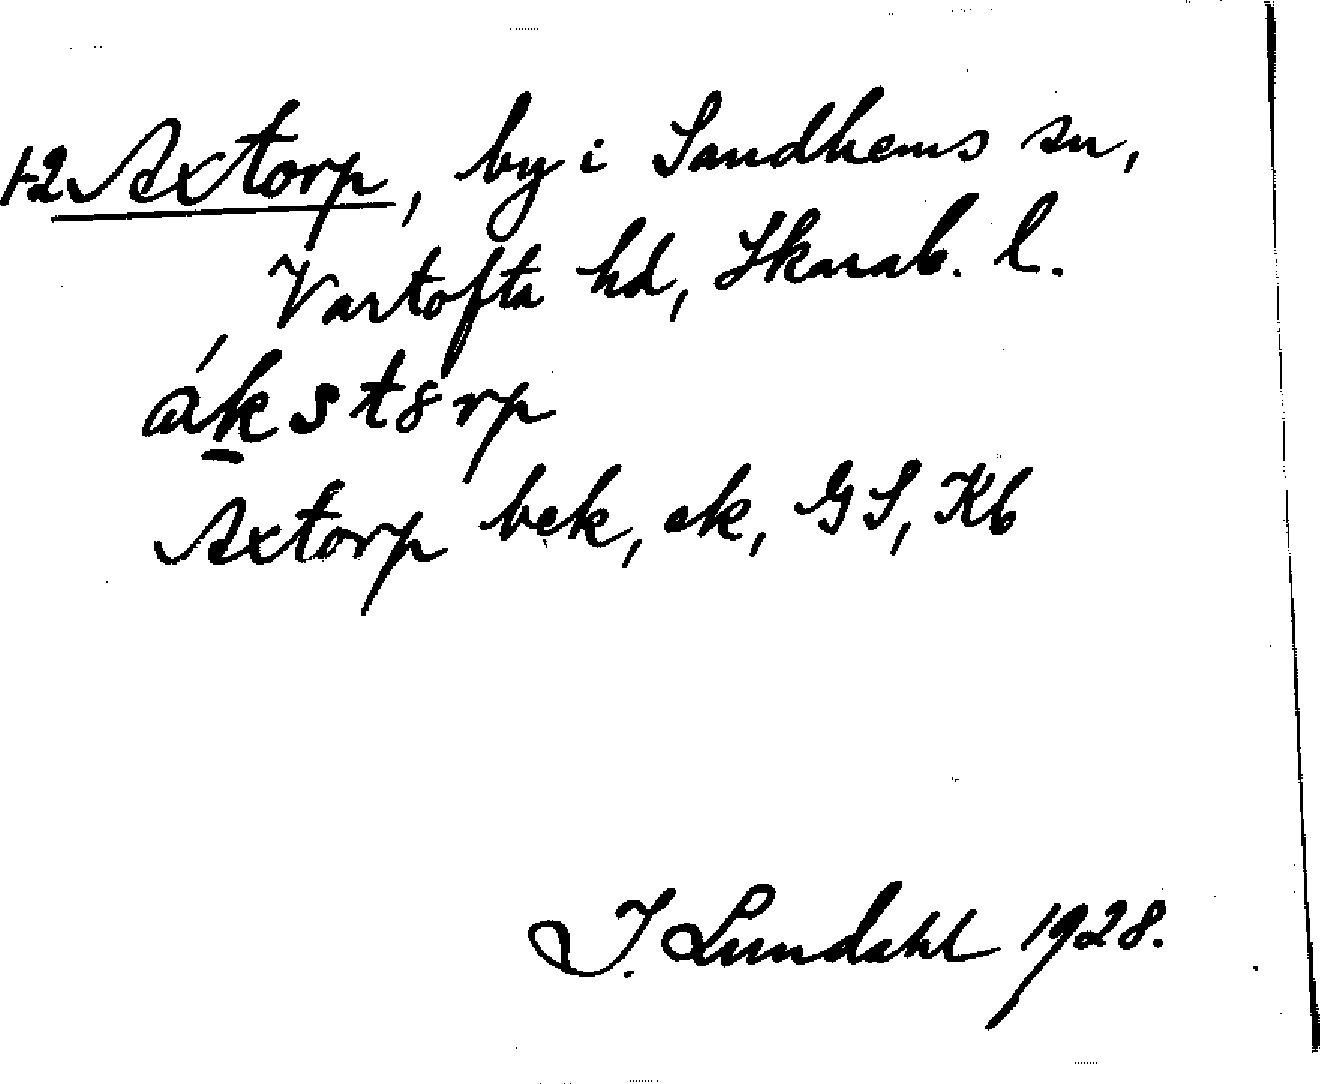 1-2 Axtorp, by i Sandhems sn,
Vartofta hd, Skarab. l.
áks t8rp
Axtorp bek, ek, GS, Kb
I. Lundahl 1928.